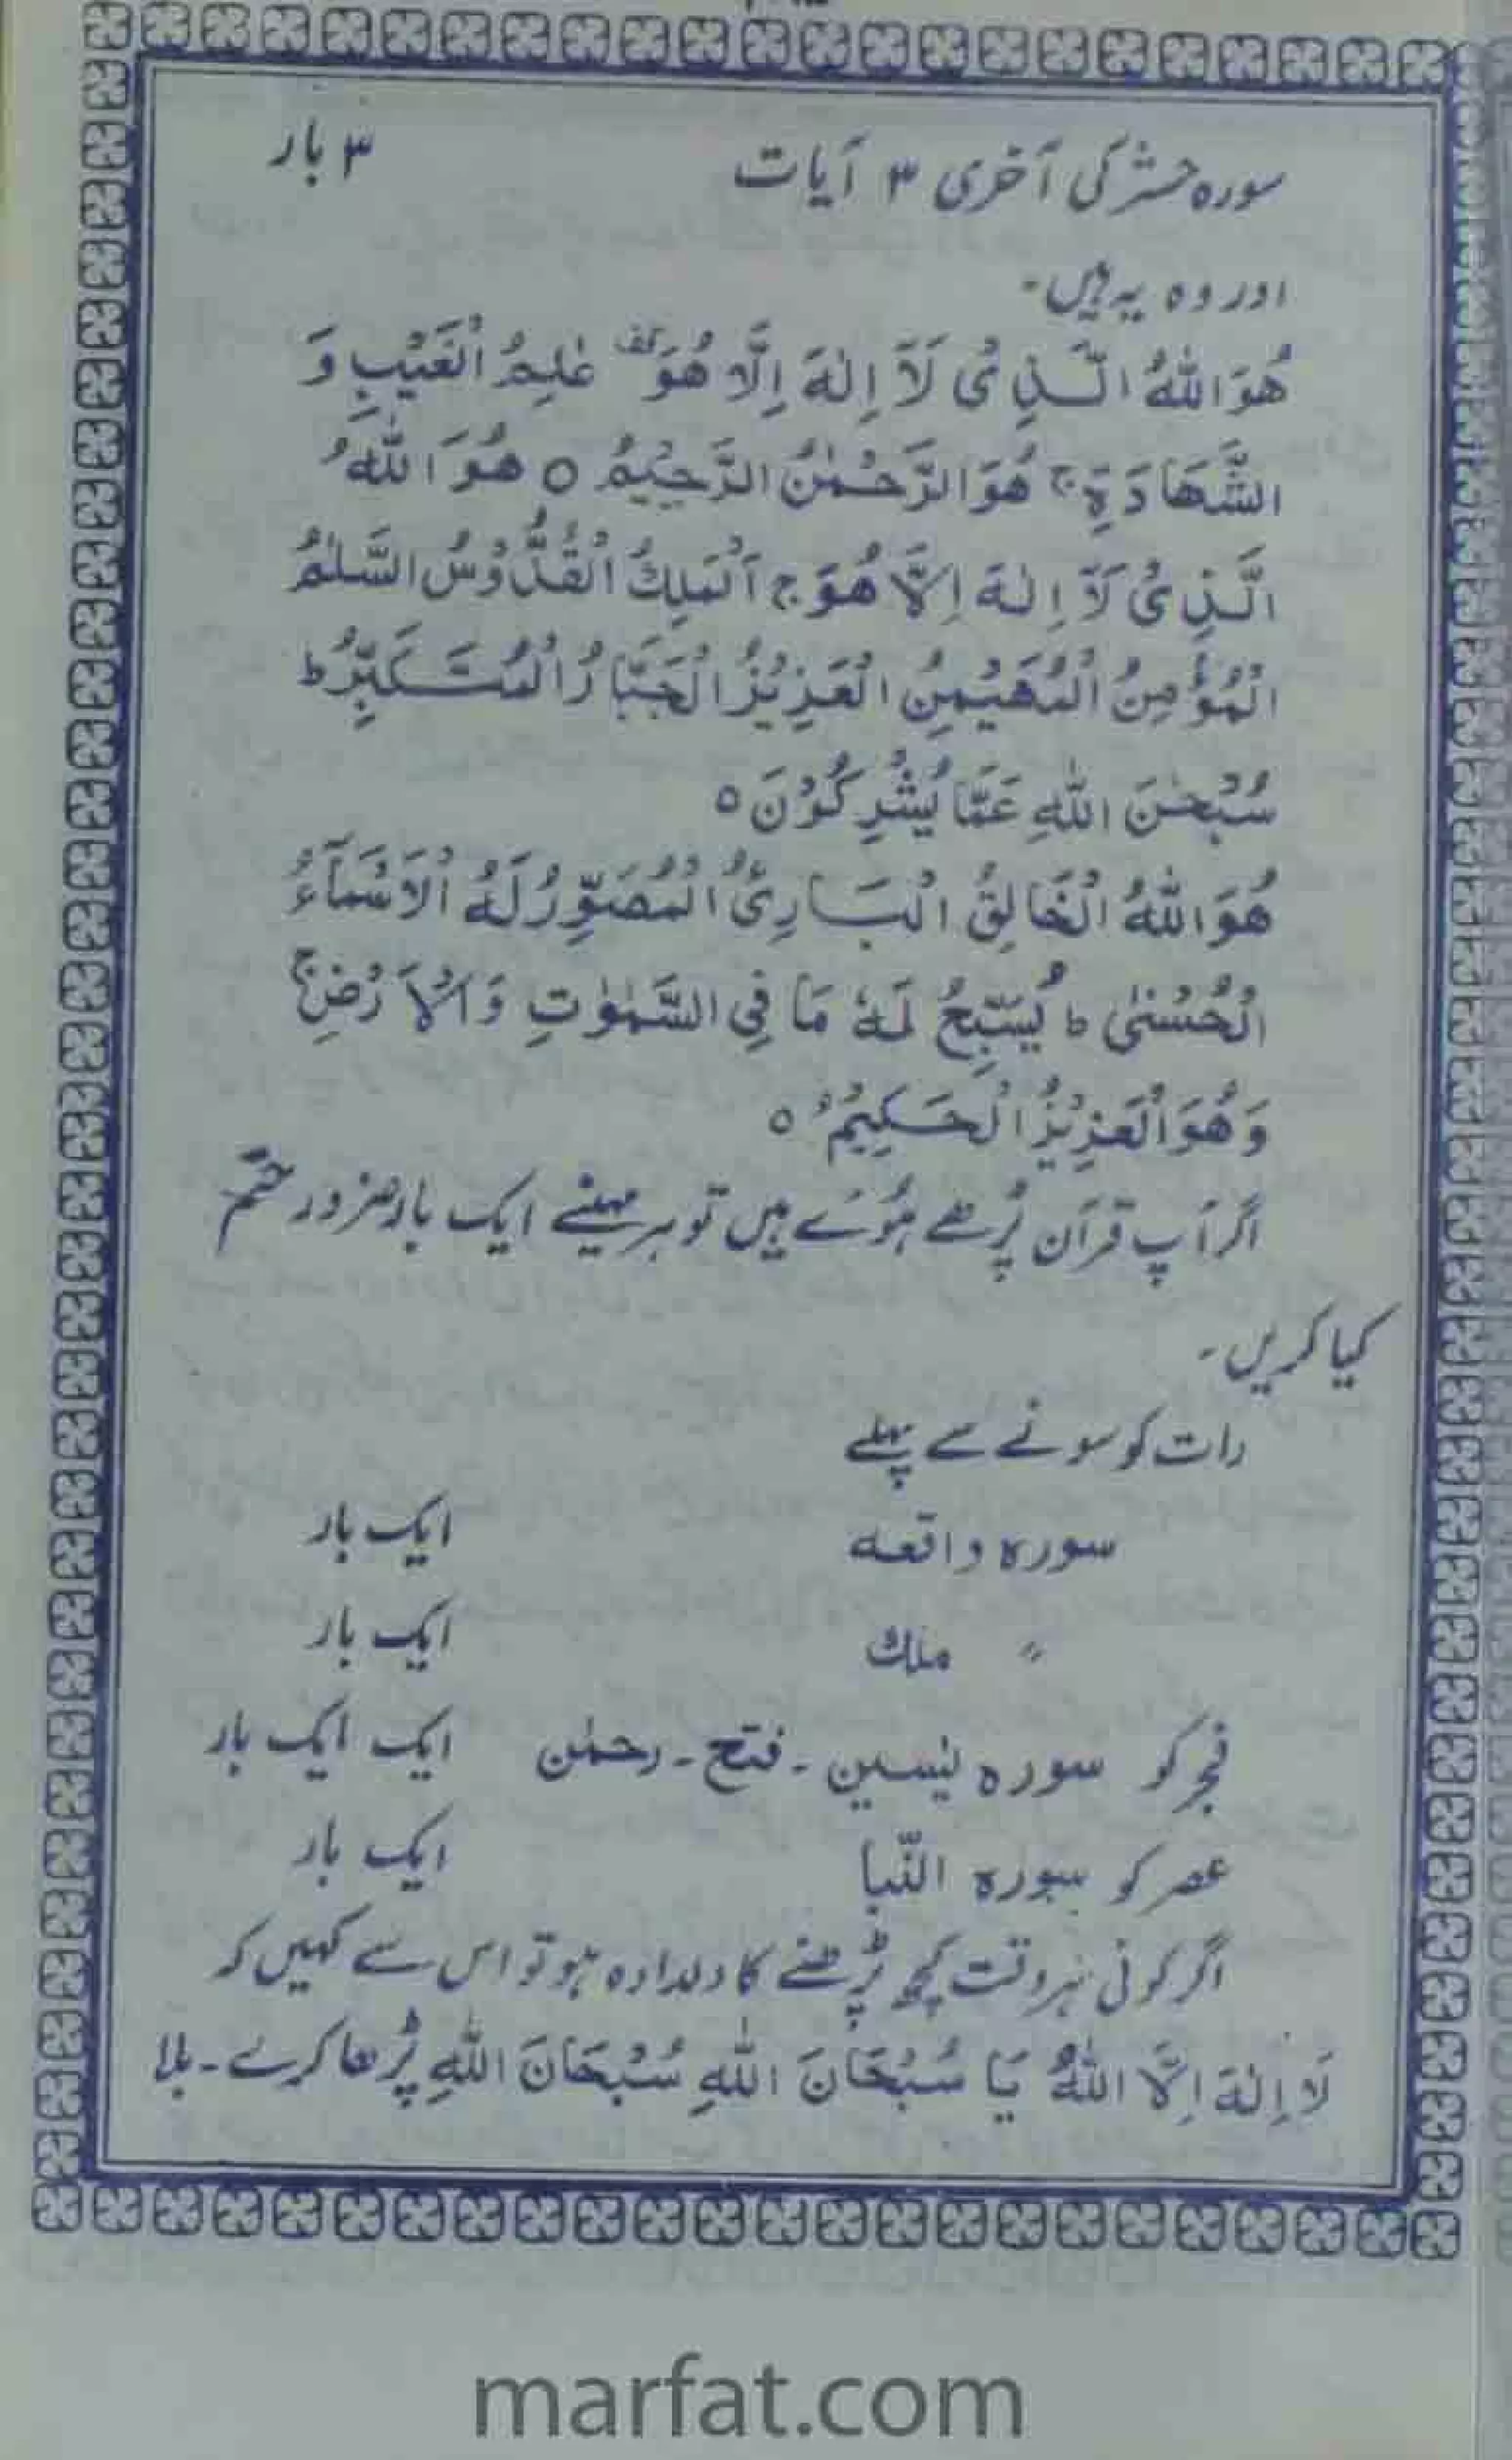 سورہ حشر کی آخری ۳ آیات ۳ بار
اور وہ یہ ہیں۔
هُوَ اللّٰهُ الَّذِىْ لَاۤ اِلٰهَ اِلَّا هُوَ عٰلِمُ الْغَيْبِ وَ
الشَّهَادَةِ ج هُوَ الرَّحْمٰنُ الرَّحِيْمُ ○ هُوَ اللّٰهُ
الَّذِىْ لَاۤ اِلٰهَ اِلَّا هُوَ ج اَلْمَلِكُ الْقُدُّوْسُ السَّلٰمُ
الْمُؤْمِنُ الْمُهَيْمِنُ الْعَزِيْزُ الْجَبَّارُ الْمُتَكَبِّرُ ط
سُبْحٰنَ اللّٰهِ عَمَّا يُشْرِكُوْنَ ○
هُوَ اللّٰهُ الْخَالِقُ الْبَارِئُ الْمُصَوِّرُ لَهُ الْاَسْمَآءُ
الْحُسْنٰى ط يُسَبِّحُ لَهٗ مَا فِى السَّمٰوٰتِ وَالْاَرْضِ ج
وَهُوَ الْعَزِيْزُ الْحَكِيْمُ ○
اگر آپ قرآن پڑھے ہوئے ہیں تو ہر مہینے ایک بار ضرور ختم
کیا کریں۔
رات کو سونے سے پہلے
سورہ واقعہ ایک بار
〃 ملک ایک بار
فجر کو سورہ یٰسین ۔ فتح ۔ رحمٰن ایک ایک بار
عصر کو سورہ النّبا ایک بار
اگر کوئی ہر وقت کچھ پڑھنے کا دلدادہ ہو تو اس سے کہیں کہ
لَا اِلٰهَ اِلَّا اللّٰهُ يَا سُبْحَانَ اللّٰهِ سُبْحَانَ اللّٰهِ پڑھا کرے۔ بلا
marfat.com